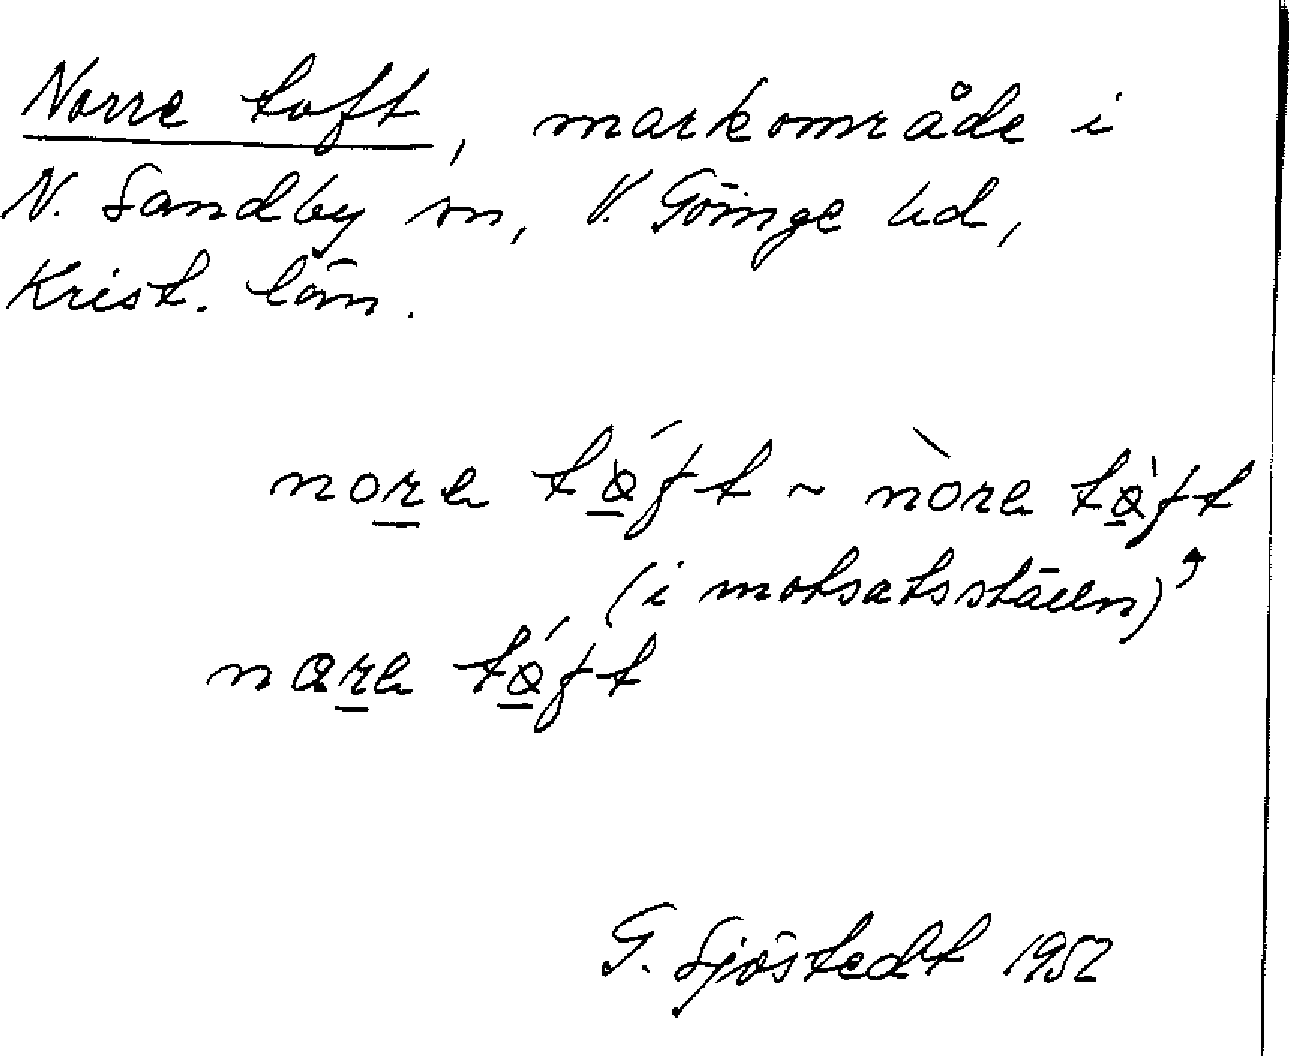 Norre toft, markområde i
N. Sandby sn, V. Göinge hd,
Krist. län.
nora tǫ́ft ~ nòra tǫ̀ft
(i motsatsställn),
nara tǫ́ft
G. Sjöstedt 1952